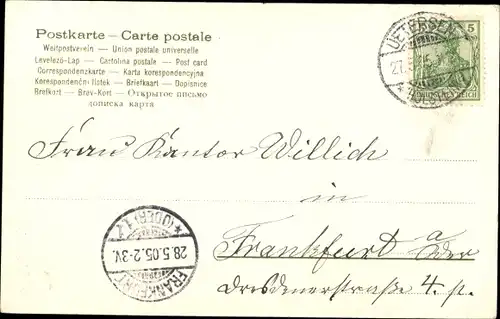 Postkarte – Carte postale
Weltpostverein – Union postale universelle
Levelező-Lap – Cartolina postale – Post card
Correspondenzkarte – Karta korespondencyjna
Korespondenční lístek – Briefkaart – Dopisnice
Brefkort – Brev-Kort – Открытое письмо
дописна карта
UETERSEN
27.
* (HOLST
5
DEUTSCHES REICH
Frau Kantor Willich
in
Frankfurt a/Oder
Dresdenerstraße 4. pt.
* (ODER) 1 Z
28.5.05.2-3V.
FRANKFURT